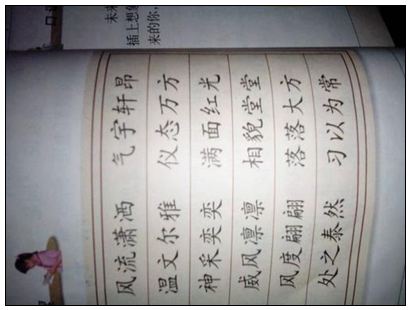 风流潇洒 气宇轩昂
温文尔雅 仪态万方
神采奕奕 满面红光
威风凛凛 相貌堂堂
风度翩翩 落落大方
处之泰然 习以为常
口
未来
插上想
来的你,